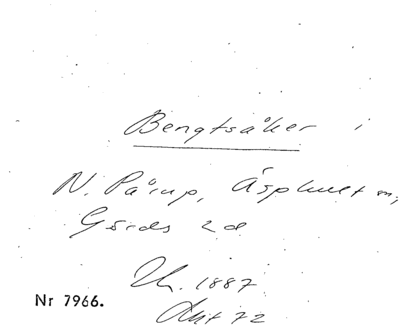 Bengtsåker i
N. Pårup, Äsphult sn,
Gärds hd
Th. 1887
Akt 72
Nr 7966.